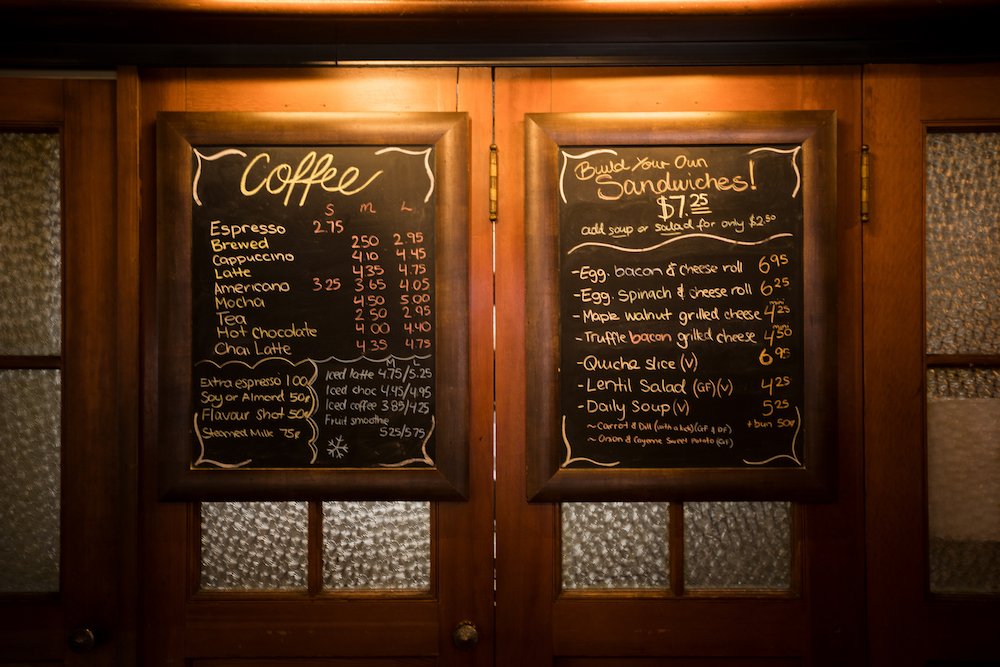 Coffee
S M L
Espresso 2.75
Brewed 2.50 2.95
Cappuccino 4.10 4.45
Latte 4.35 4.75
Americano 3.25 3.65 4.05
Mocha 4.50 5.00
Tea 2.50 2.95
Hot Chocolate 4.00 4.40
Chai Latte 4.35 4.75
Extra espresso 1.00
Soy or Almond 50¢
Flavour Shot 50¢
Steamed Milk 75¢
M L
Iced latte 4.75/5.25
Iced choc 4.45/4.95
Iced coffee 3.85/4.25
Fruit smoothie
5.25/5.75
Build Your Own
Sandwiches!
$7.25
add soup or salad for only $2.50
-Egg, bacon & cheese roll 6.95
-Egg, spinach & cheese roll 6.25
-Maple walnut grilled cheese mini 4.25
-Truffle bacon grilled cheese mini 4.50
-Quiche slice (v) 6.95
-Lentil Salad (GF)(V) 4.25
-Daily Soup (V) 5.25
~Carrot & Dill (GF & DF) +bun 50¢
~Onion & Cayenne Sweet Potato (GF)